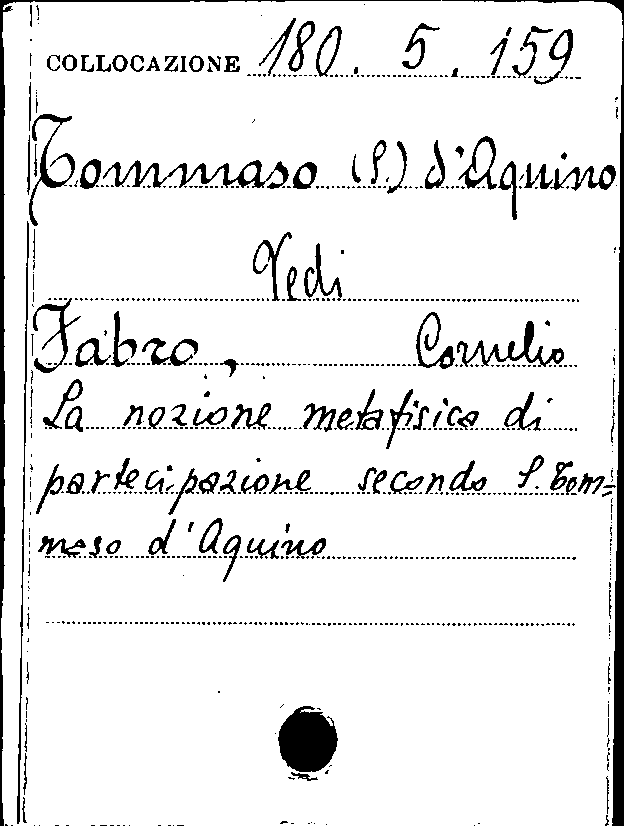 COLLOCAZIONE 180. 5. 159
Tommaso (S.) d'Aquino
Vedi
Fabro, Cornelio
La nozione metafisica di
partecipazione secondo S. Tom=
maso d'Aquino